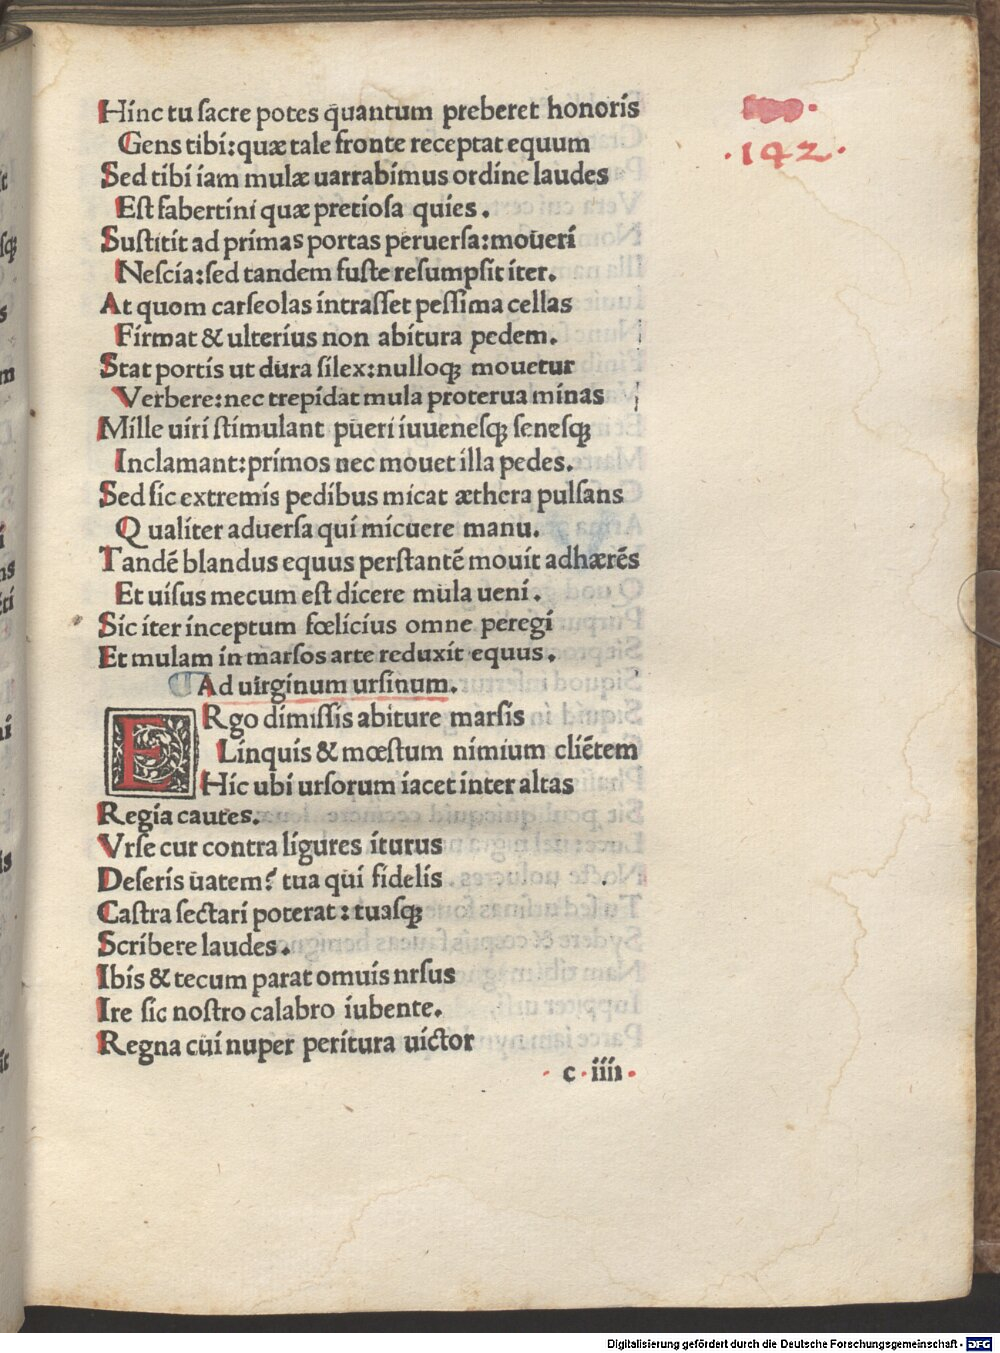 .142.
Hinc tu sacre potes quantum preberet honoris
Gens tibi: quæ tale fronte receptat equum
Sed tibi iam mulæ uarrabimus ordine laudes
Est fabertini quæ pretiosa quies.
Sustitit ad primas portas peruersa: moueri
Nescia: sed tandem fuste resumpsit iter.
At quom carseolas intrasset pessima cellas
Firmat & ulterius non abitura pedem.
Stat portis ut dura silex: nulloqꝫ mouetur
Verbere: nec trepidat mula proterua minas
Mille uiri stimulant pueri iuuenesqꝫ senesqꝫ
Inclamant: primos nec mouet illa pedes.
Sed sic extremis pedibus micat æthera pulsans
Qualiter aduersa qui micuere manu.
Tandē blandus equus perstantē mouit adhærēs
Et uisus mecum est dicere mula ueni.
Sic iter inceptum fœlicius omne peregi
Et mulam in marsos arte reduxit equus.
Ad uirginum ursinum.
ERgo dimissis abiture marsis
Linquis & mœstum nimium cliētem
Hic ubi ursorum iacet inter altas
Regia cautes.
Vrse cur contra ligures iturus
Deseris uatem? tua qui fidelis
Castra sectari poterat: tuasqꝫ
Scribere laudes.
Ibis & tecum parat omuis nrsus
Ire sic nostro calabro iubente.
Regna cui nuper peritura uictor
. c . iiii .
Digitalisierung gefördert durch die Deutsche Forschungsgemeinschaft - DFG